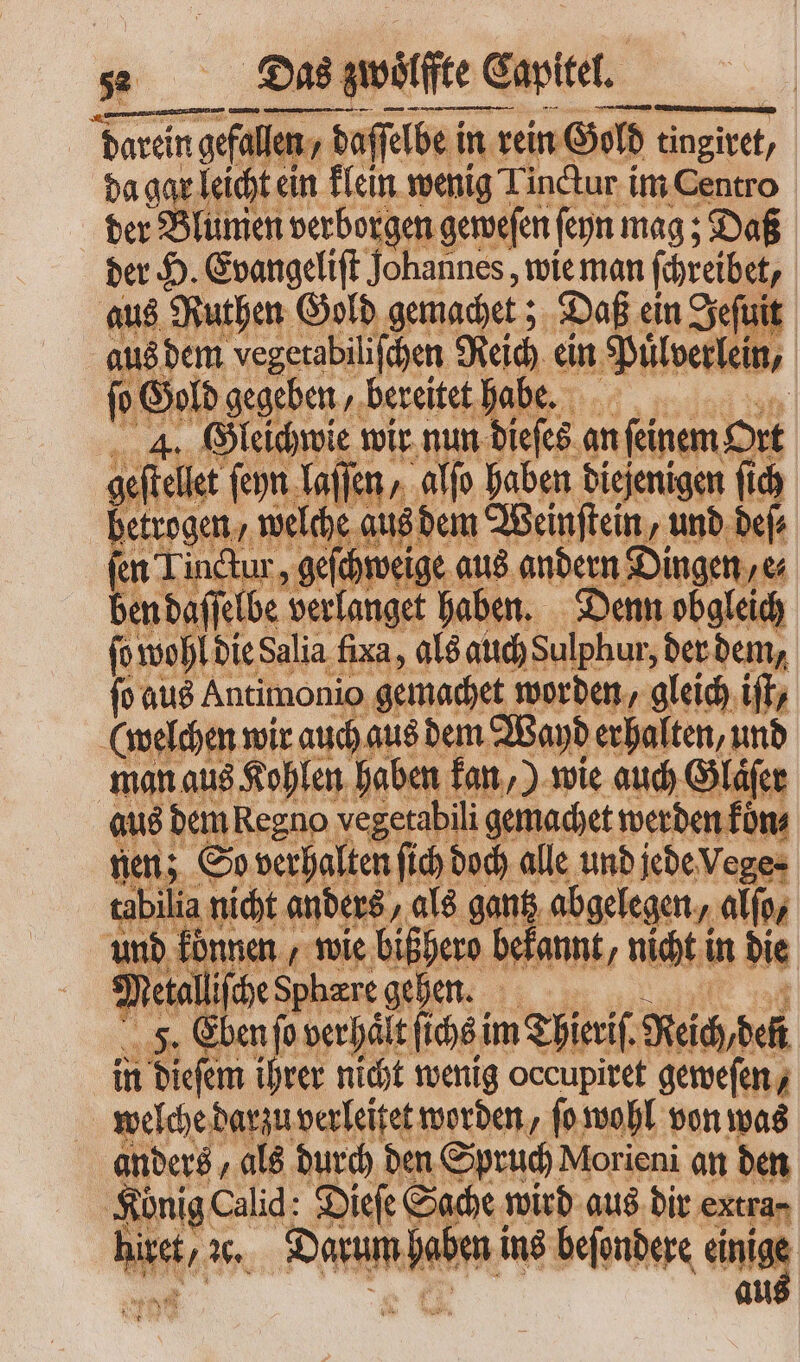 52 Das zwoͤlffte Capitel.
darein gefallen, daſſelbe in rein Gold tingiret,
da gar leicht ein klein wenig Tinctur im Centro
der Blumen verborgen geweſen ſeyn mag; Daß
der H. Evangeliſt Johannes, wie man ſchreibet,
aus Ruthen Gold gemachet; Daß ein Jeſuit
aus dem vegetabiliſchen Reich ein Puͤlverlein,
ſo Gold gegeben, bereitet habe.
4. Gleichwie wir nun dieſes an ſeinem Ort
geſtellet ſeyn laſſen, alſo haben diejenigen ſich
betrogen, welche aus dem Weinſtein, und deſ⸗
ſen Tinctur, geſchweige aus andern Dingen, e⸗
ben daſſelbe verlanget haben. Denn obgleich
ſo wohl die Salia fixa, als auch Sulphur, der dem,
ſo aus Antimonio gemachet worden, gleich iſt,
(welchen wir auch aus dem Wayd erhalten, und
man aus Kohlen haben kan,) wie auch Glaͤſer
aus dem Regno vegetabili gemachet werden koͤn⸗
nen; So verhalten ſich doch alle und jede Vege-
tabilia nicht anders, als gantz abgelegen, alſo,
und koͤnnen, wie bißhero bekannt, nicht in die
Metalliſche Sphære gehen.
5. Eben ſo verhaͤlt ſichs im Thieriſ. Reich, deñ
in dieſem ihrer nicht wenig occupiret geweſen,
welche darzu verleitet worden, ſo wohl von was
anders, als durch den Spruch Morieni an den
Koͤnig Calid: Dieſe Sache wird aus dir extra-
hiret, ꝛc. Darum haben ins beſondere einige
aus